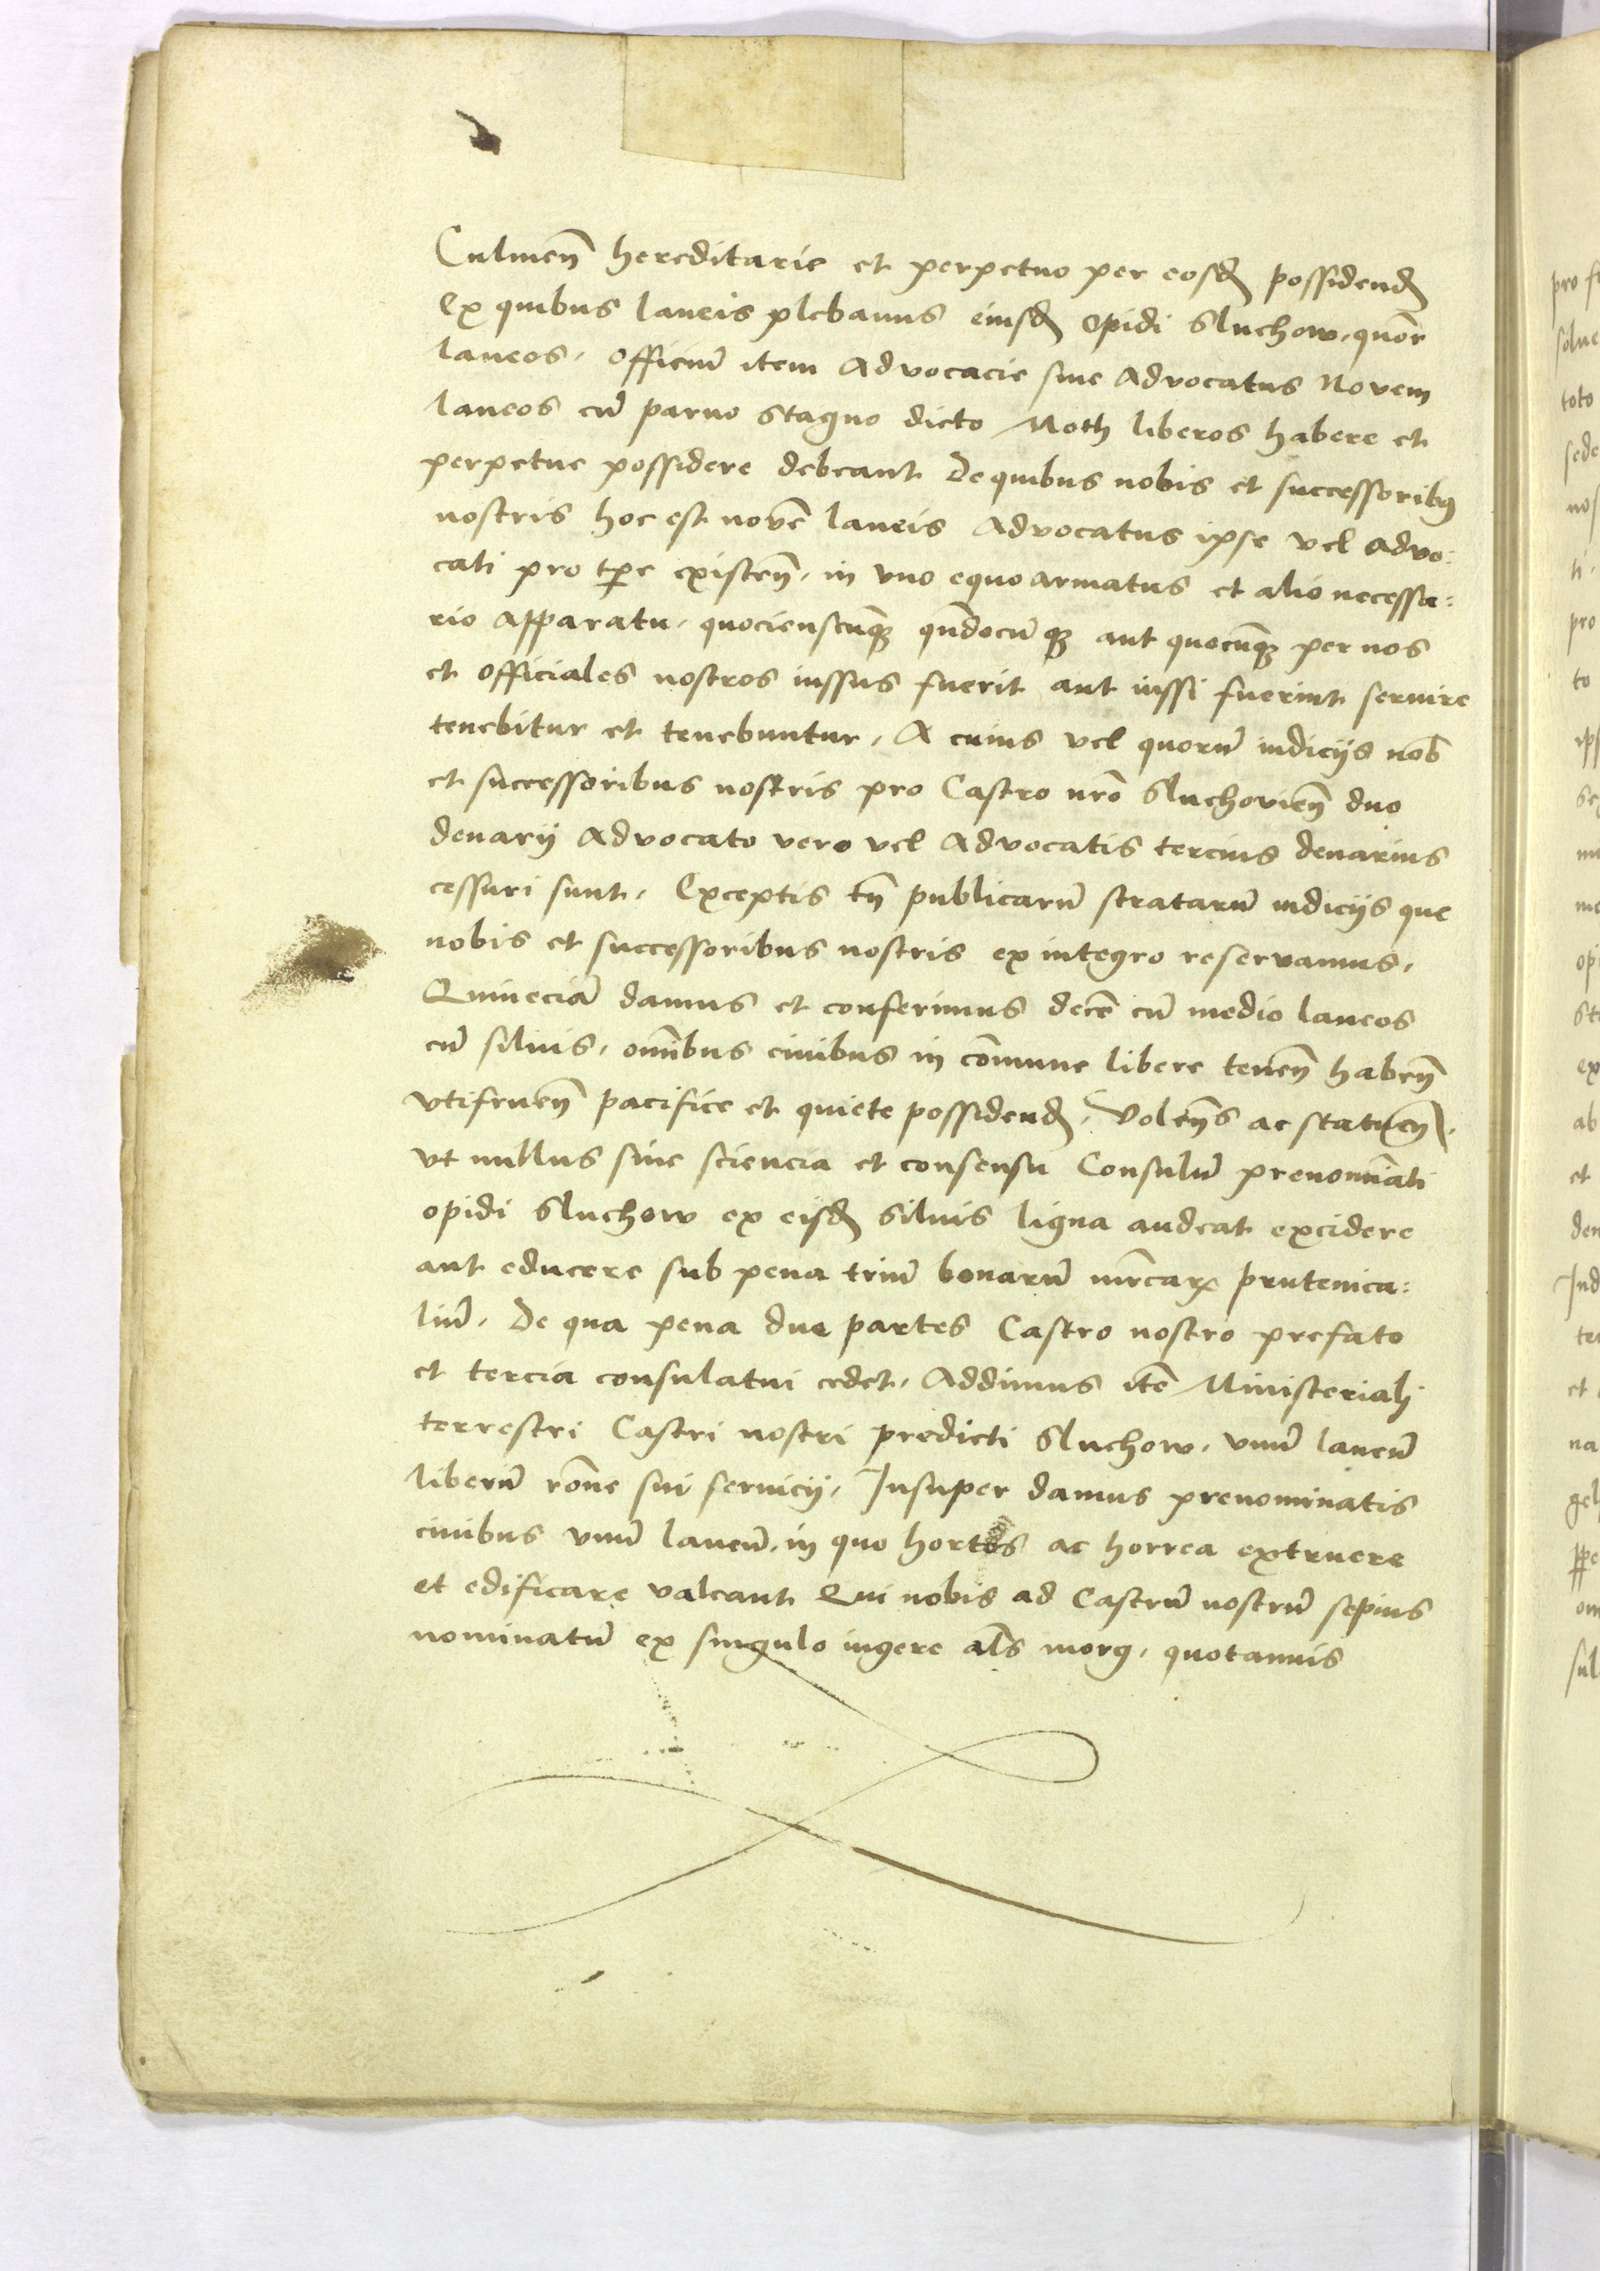 Culmen̄ hereditarie et perpetuo per eosd possidend
Ex quibus laneis plebanus eiusd opidi Sluchow, quor̄
laneos, officiū item Advocacie siue Advocatus Novem
laneos cū paruo stagno dicto Moth liberos habere et
perpetue possidere debeant De quibus nobis et successoribꝰ
nostris hoc est novē laneis Advocatus ipse vel Advo:
cati pro tp̄e existen̄, in vno equo armatus et alio necessa:
rio Apparatu, quocienscūqꝫ qn̄docūqꝫ aut quocūqꝫ per nos
et officiales nostros iussus fuerit aut iussi fuerint seruire
tenebitur et tenebuntur, A cuius vel quorū iudicijs nob̄
et successoribus nostris pro Castro nr̄o Sluchovien̄ duo
denarij Advocato vero vel Advocatis tercius denarius
cessuri sunt, Exceptis tn̄ publicarū stratarū iudicijs que
nobis et successoribus nostris ex integro reservamus,
Quineciā damus et conferimus decē cū medio laneos
cū siluis, om̄ibus ciuibus in cōmune libere tenen̄ haben̄
vtifruen̄ pacifice et quiete possidend, Volen̄s ac statuen̄,
vt nullus sine sciencia et consensu Consulū prenomīati
opidi Sluchow ex eisd siluis ligna audeat excidere
aut educere sub pena triū bonarū mr̄caꝝ prutenica:
liū, De qua pena due partes Castro nostro prefato
et tercia consulatui cedet, Addimus itē Ministeriali
terrestri Castri nostri predicti Sluchow, vnū laneū
liberū rōne sui seruicij, Insuper damus prenominatis
ciuibus vnū laneū, in quo hortos ac horrea extruere
et edificare valeant Qui nobis ad Castrū nostrū sepius
nominatū ex singulo iugere al̄s morg, quotannis